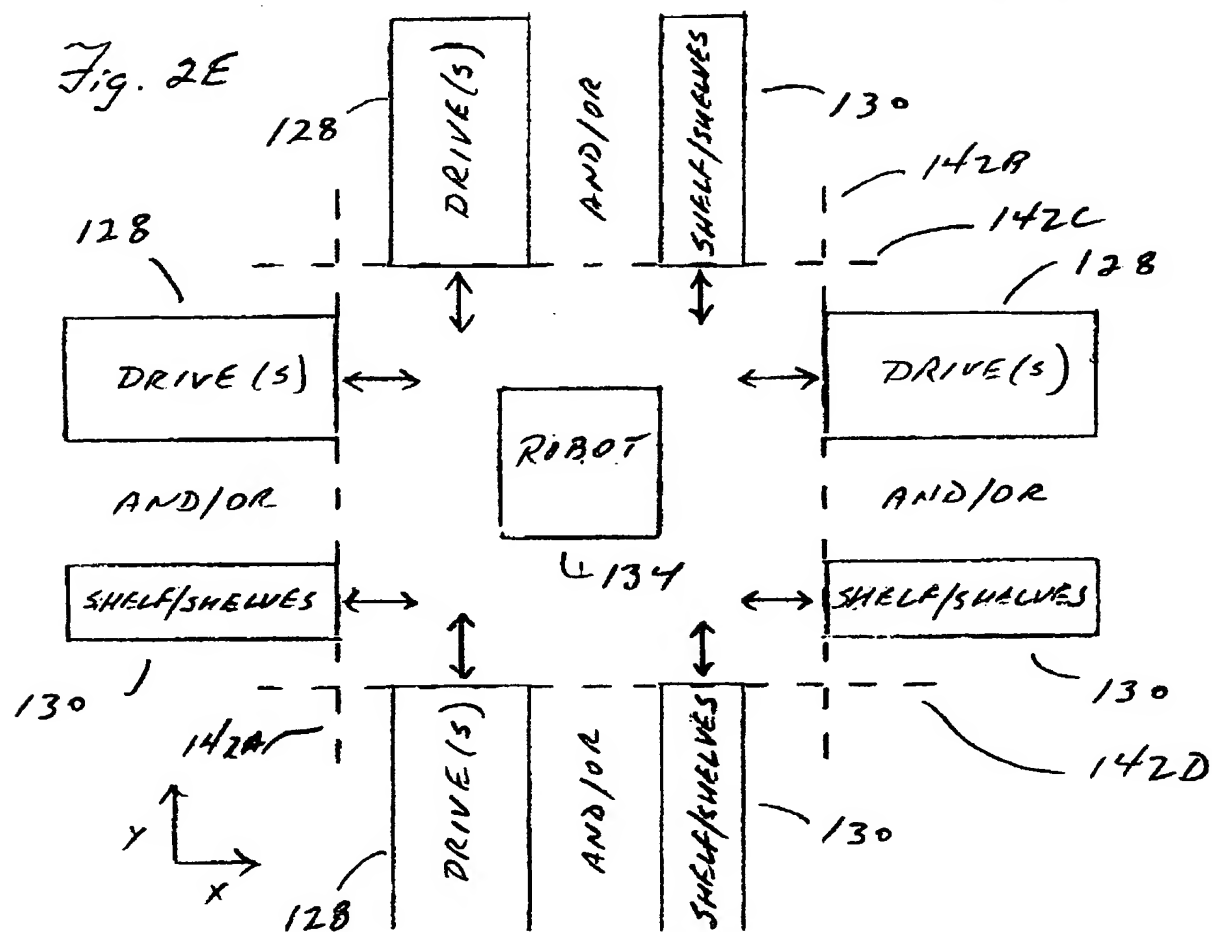 Fig. 2E
128
DRIVE(S)
AND/OR
SHELF/SHELVES
130
142B
142C
128
128
DRIVE(S)
DRIVE(S)
ROBOT
AND/OR
AND/OR
134
SHELF/SHELVES
SHELF/SHELVES
130
130
142A
142D
DRIVE(S)
AND/OR
SHELF/SHELVES
130
128
Y
X